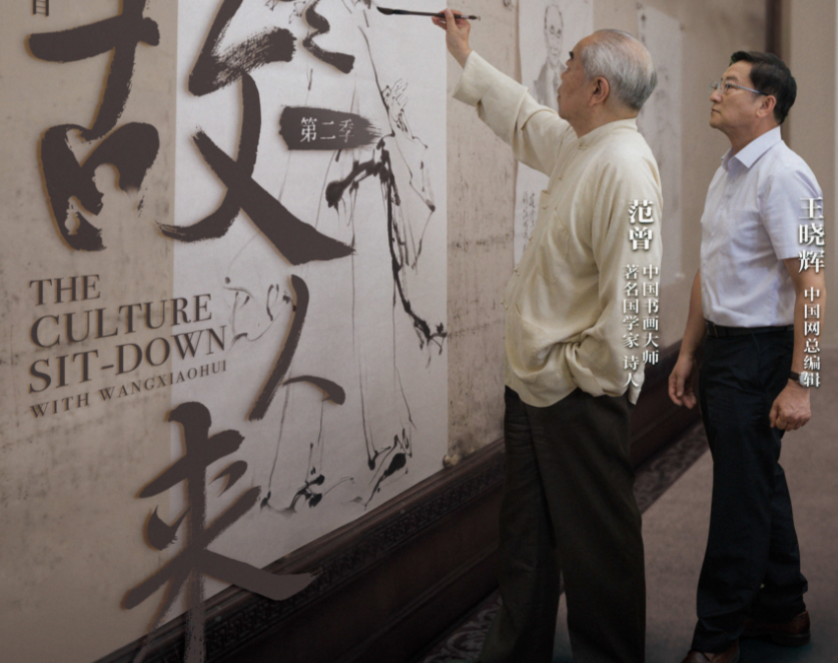 故人来
第二季
THE
CULTURE
SIT-DOWN
WITH WANGXIAOHUI
范曾
中国书画大师
著名国学家 诗人
王晓辉
中国网总编辑